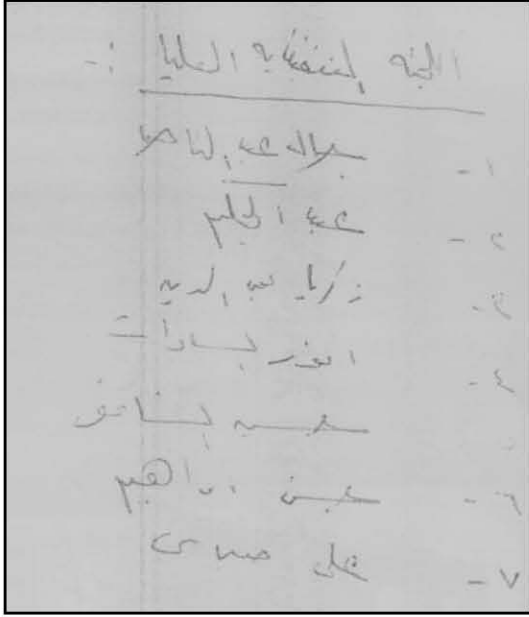 اللجنة التنفيذية العليا :-
١- جمال عبد الناصر
٢- عبد الحكيم
٣- زكريا محى الدين
٤- انور السادات
حسين الشافعى
٦- حسن ابراهيم
٧- على صبرى